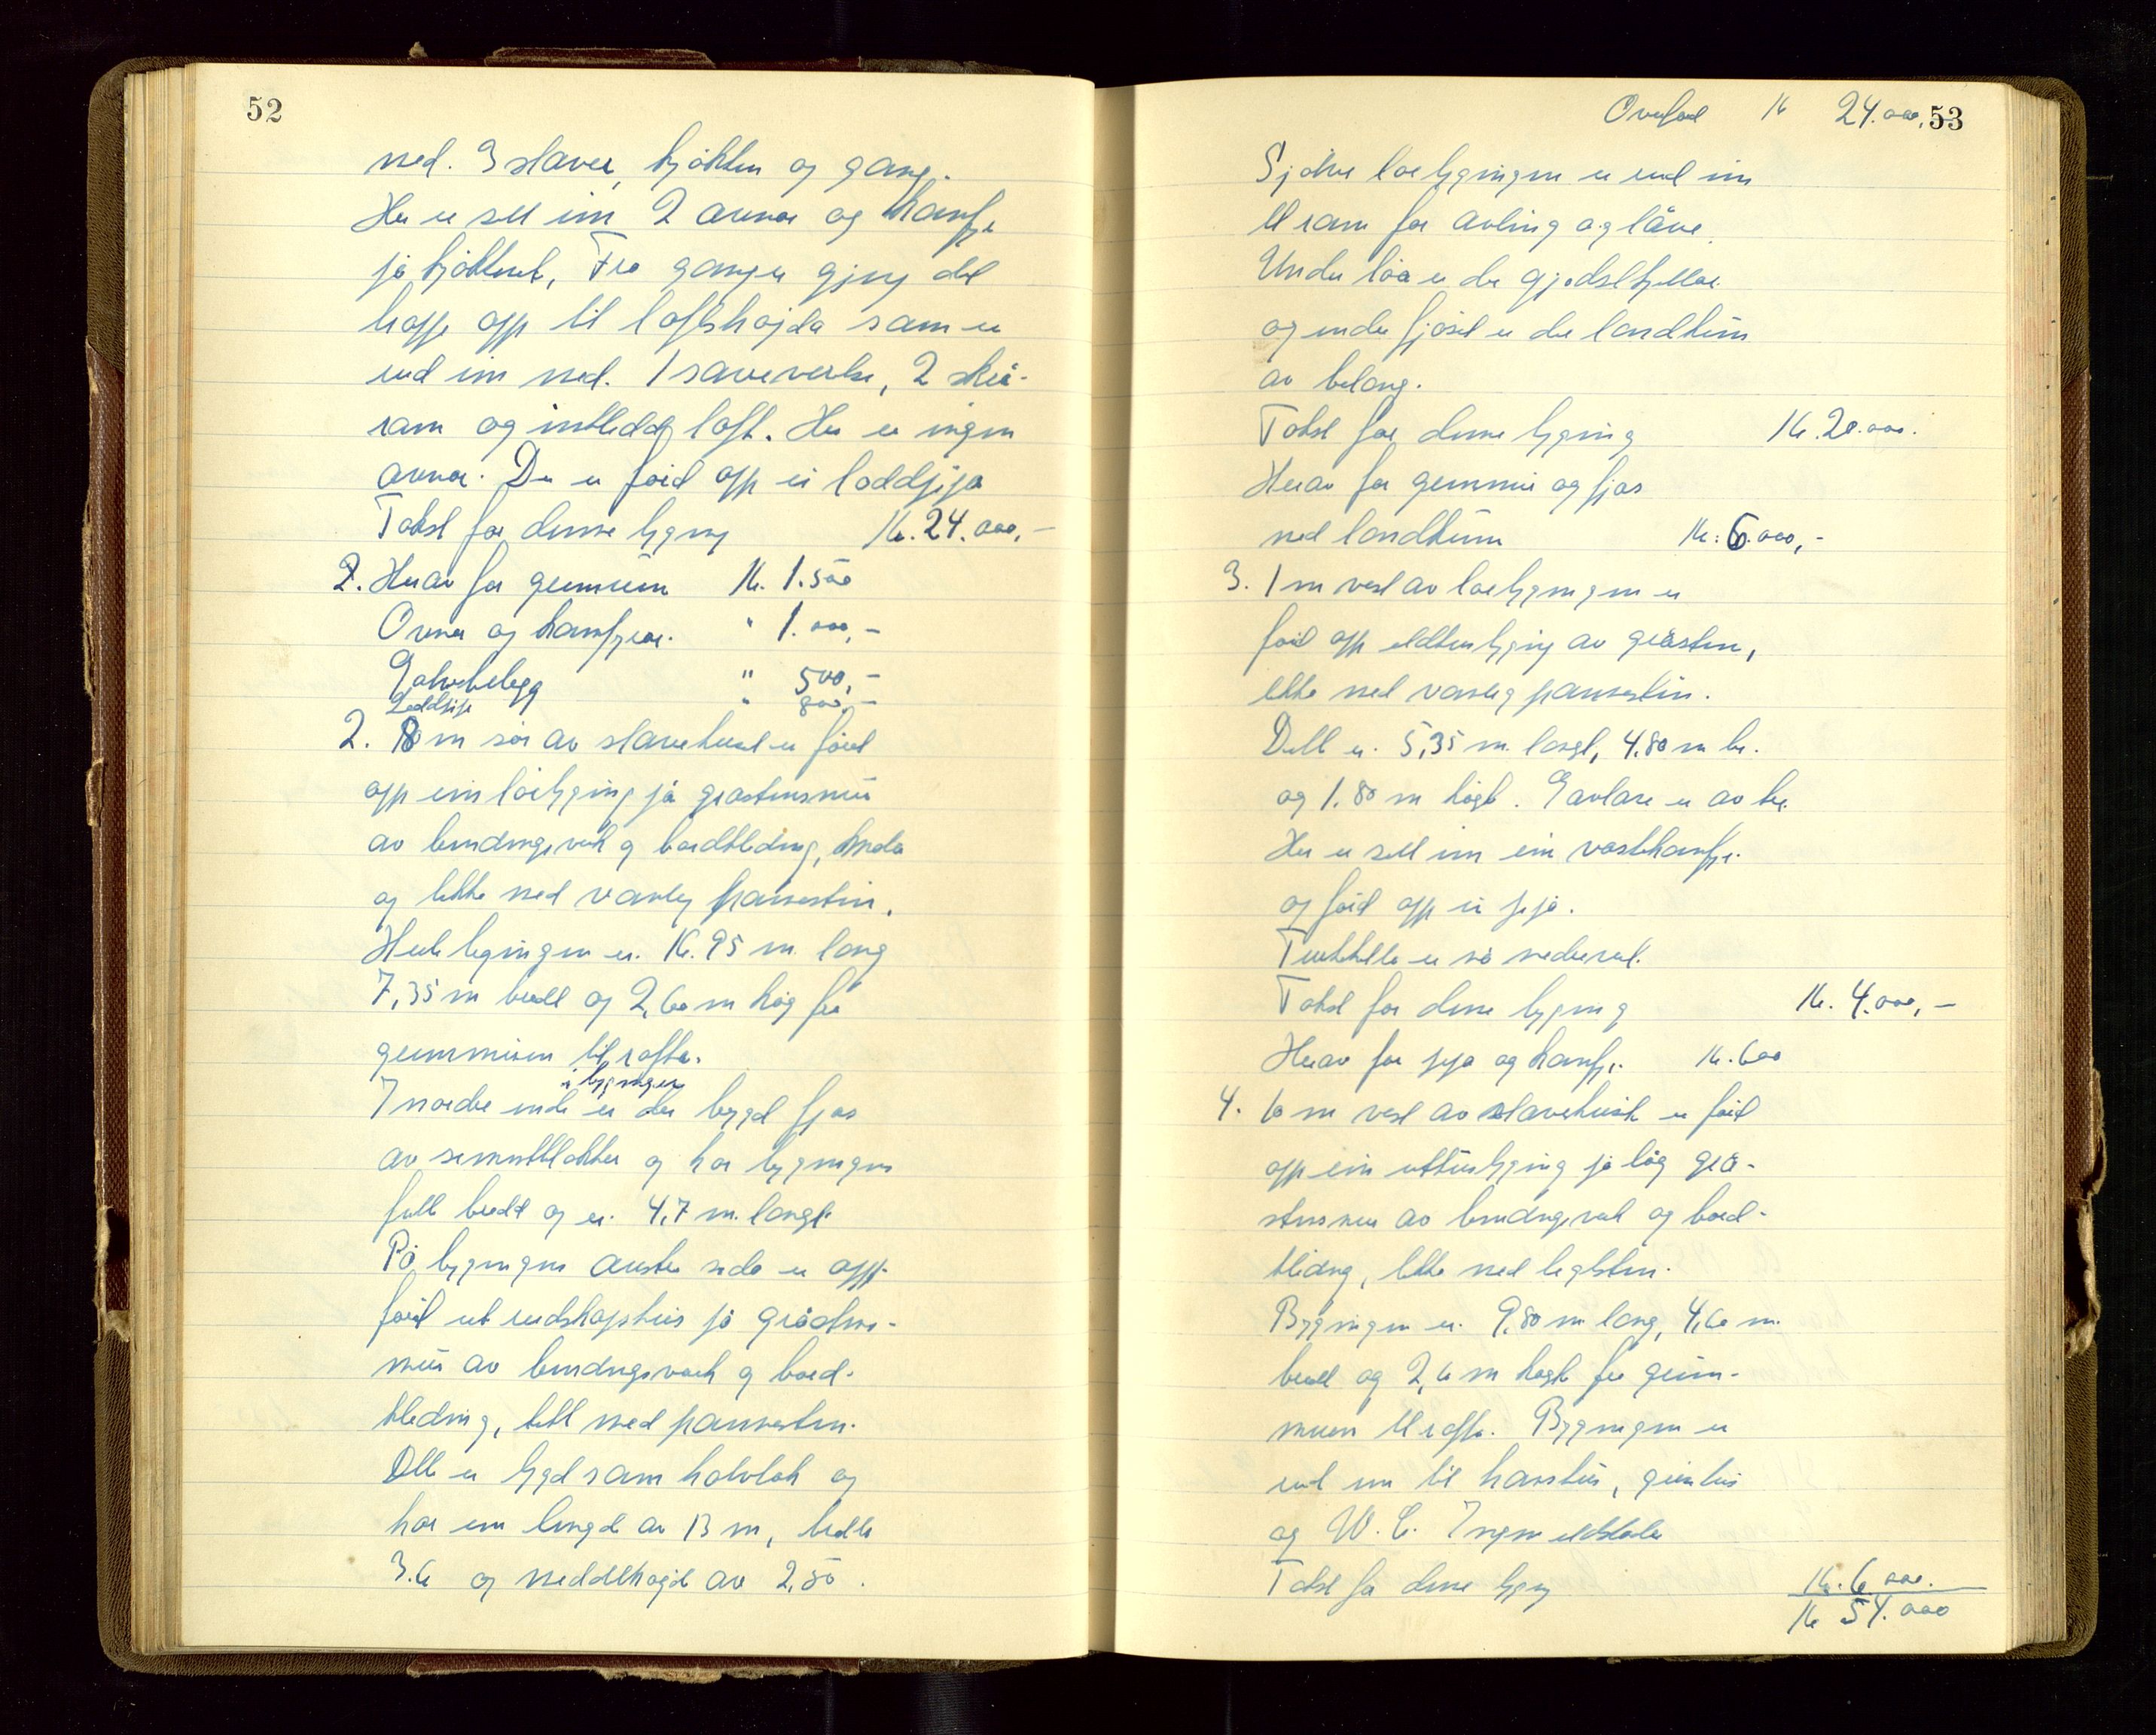 52
med. 3 stover, kjøkken og gang.
Her er sett inn 2 ovnar og komfyr
på kjøkkenet, Frå gangen gjeng det
trapp opp til loftshøgda som er
innreid med. 1 soveverelse, 2 skrå-
rom og innkledd loft. Her er ingen
ovnar. Der er ført opp ei loddpipa
Takst for denne bygning Kr. 24.000,-
2. Herav for grunnmur Kr. 1.500
Ovnar og komfyrar. " 1.000,-
Golvbelegg " 500,-
Loddpipe " 800,-
2. 10 m sør av stovehuset er ført
opp ein løebygning på gråsteinsmur
av bindingsverk og bordkledning, måla
og tekke med vanleg pannestein.
Heile bygningen er. 16.95 m. lang
7,35 m breidd og 2,60 m høg frå
grunnmuren til raftet.
I nordre ende i bygningen er der bygd fjos
av sementblokker og har bygningens
full breidd og er. 4,7 m. langt.
På bygningens austre side er opp-
ført eit reidskapshus på gråsteins-
mur av bindingsverk og bord-
kledning, tekt med pannestein.
Dette er bygd som halvtak og
har ein lengd av 13 m, breidde
3.6 og middelhøgd av 2,50.
Overført Kr 24.000, 53
Sjølve løebygningen er innreid
til rom for avling og låve.
Under løa er der gjødselkjellar
og under fjøset er der landkum
av betong.
Takst for denne bygning Kr. 20.000.
Herav for grunnmur og fjos
med landkum Kr. 6.000,-
3. 1 m vest av løebygningen er
ført opp eldhusbygning av gråstein,
tekke med vanleg pannestein.
Dette er. 5,35 m. langt, 4.80 m br.
og 1.80 m høgt. Gavlane er av tre.
Her er sett inn ein vaskekomfyr.
og ført opp ei pipa.
Trekkhøla er nå nedrevet.
Takst for denne bygning Kr. 4.000,-
Herav for pipa og komfyr. Kr. 600
4. 10 m vest av stovehuset er ført
opp ein uthusbygning på låg grå-
steinsmur av bindingsverk og bord-
kledning, tekke med teglstein.
Bygningen er. 9,80 m lang, 4,60 m.
breidd og 2,6 m høgt frå grunn-
muren til raftet. Bygningen er
innreid til hønsehus, grisehus
og W. C. Ingen eldstader
Takst for denne bygning Kr. 6.000.
Kr 54.000